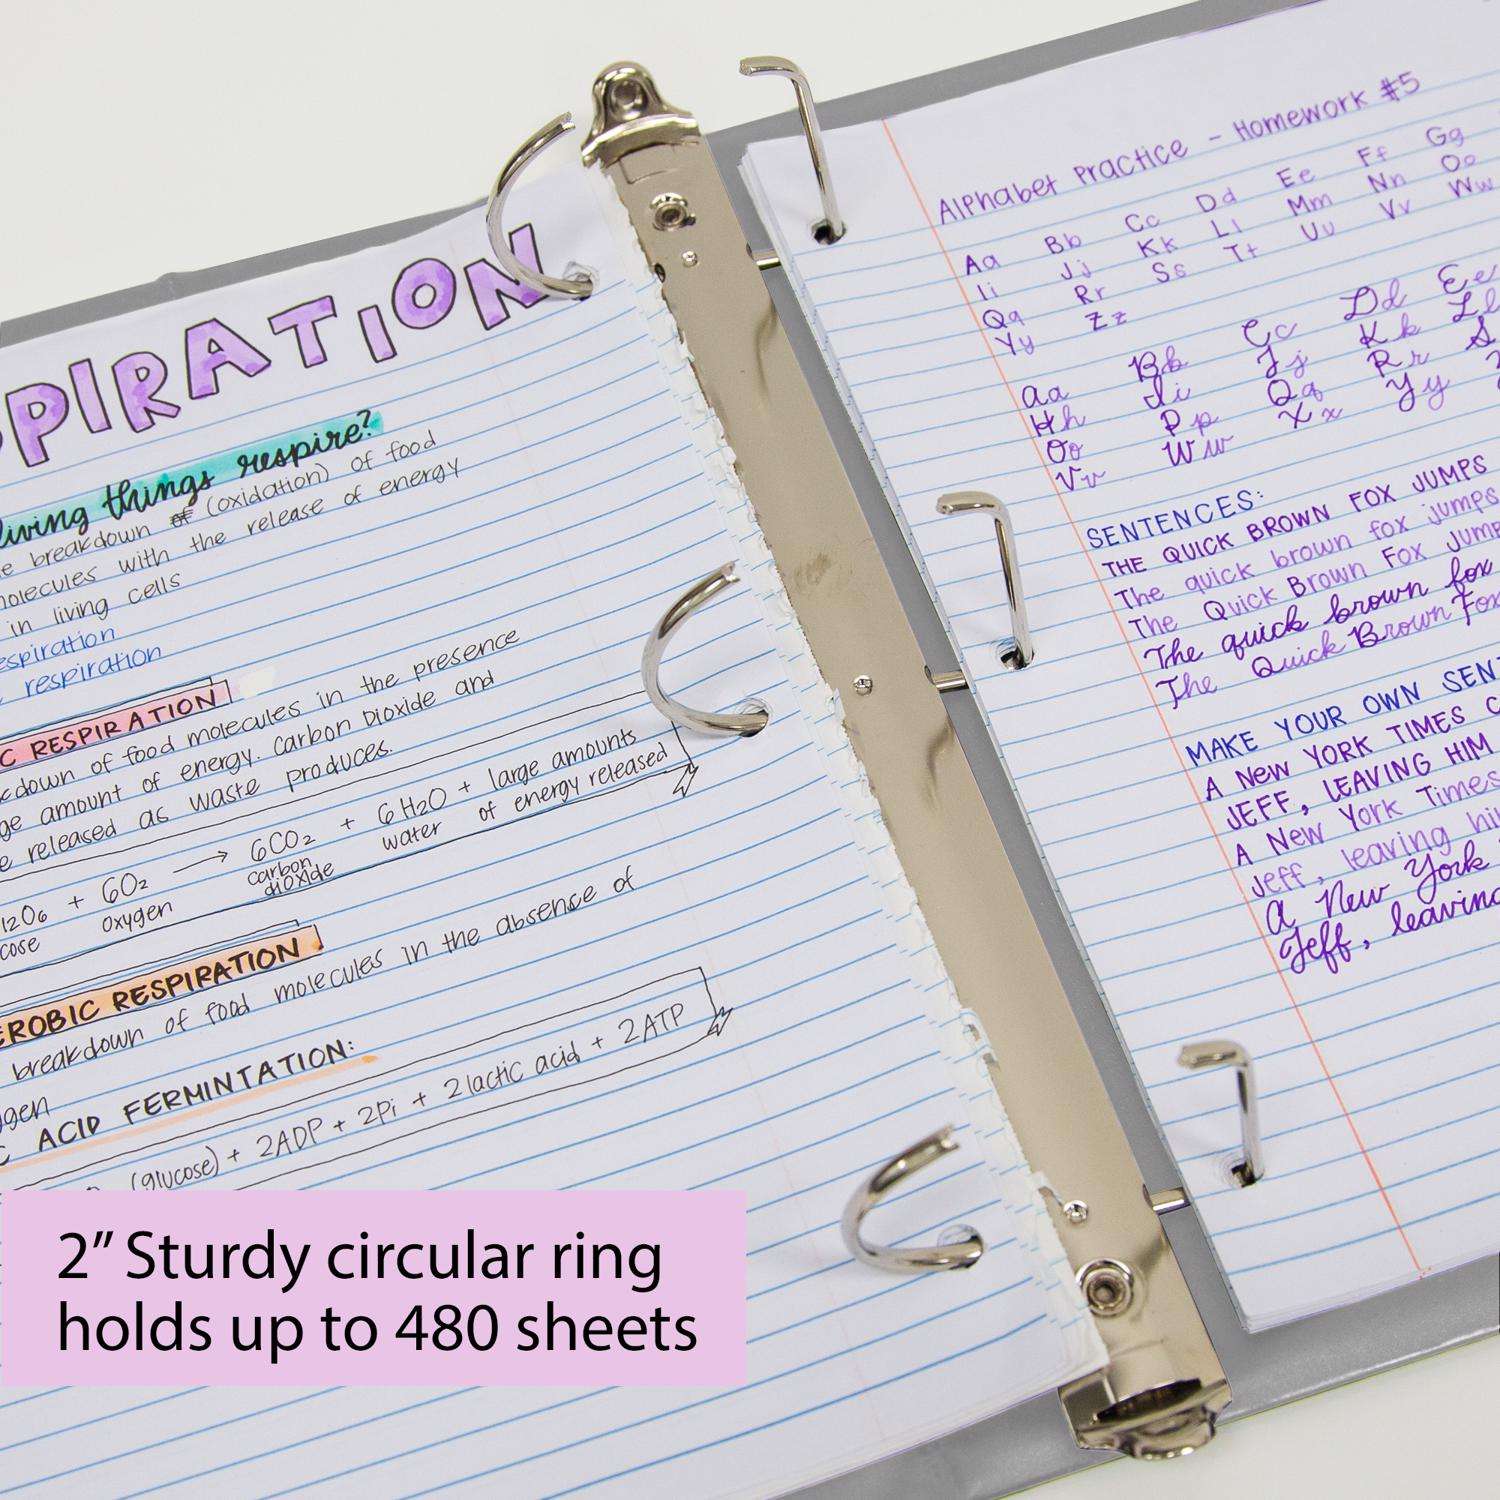 PIRATION
living things respire?
breakdown of (oxidation) of food
molecules with the release of energy
in living cells
respiration
respiration
C RESPIRATION
kdown of food molecules in the presence
ge amount of energy. Carbon Dioxide and
e released as waste produces.
12O6 + 6O2 → 6CO2 + 6H2O + large amounts
cose oxygen carbon dioxide water of energy released
EROBIC RESPIRATION
breakdown of food molecules in the absence of
gen
C ACID FERMINTATION:
(glucose) + 2ADP + 2Pi + 2 lactic acid + 2ATP
Alphabet Practice - Homework #5
Aa Bb Cc Dd Ee Ff Gg
Ii Jj Kk Ll Mm Nn Oo
Qq Rr Ss Tt Uu Vv Ww
Yy Zz
Aa Bb Cc Dd Ee
Hh Ii Jj Kk Ll
Oo Pp Qq Rr S
Vv Ww Xx Yy
SENTENCES:
THE QUICK BROWN FOX JUMPS
The quick brown fox jumps
The Quick Brown Fox Jump
The quick brown fox
The Quick Brown Fox
MAKE YOUR OWN SEN
A NEW YORK TIMES C
JEFF, LEAVING HIM
A New York Times
Jeff, leaving hi
A New York
Jeff, leaving
2” Sturdy circular ring
holds up to 480 sheets